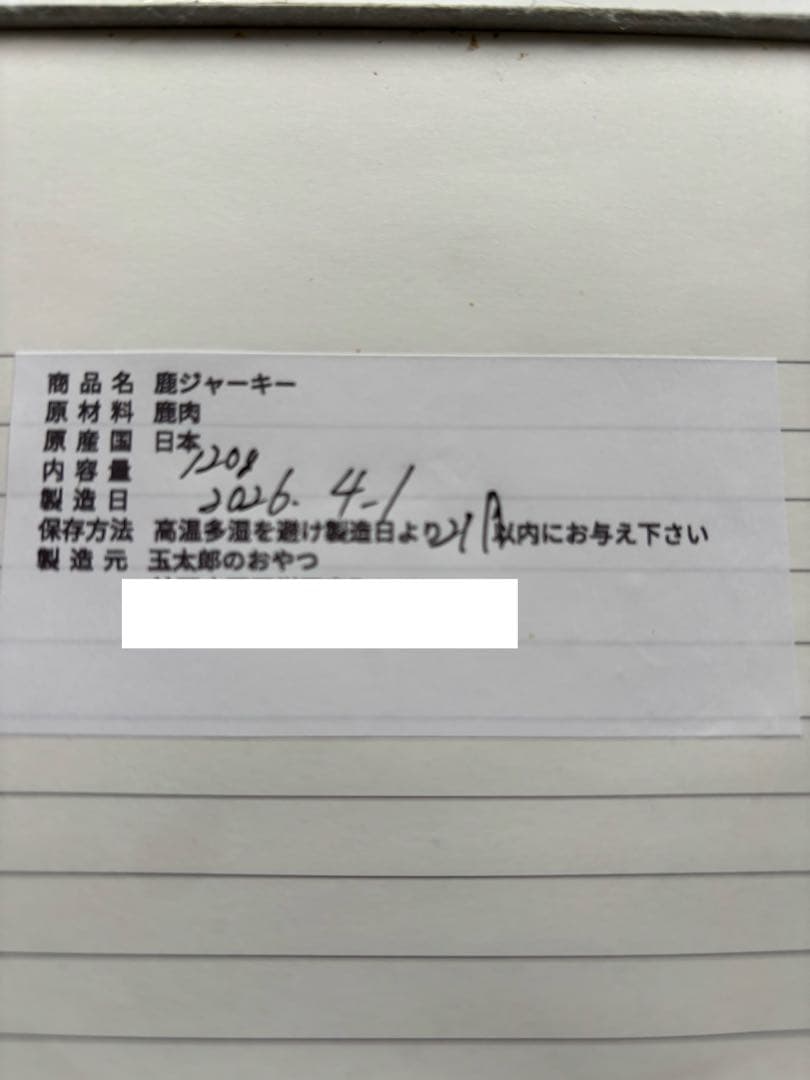 商品名 鹿ジャーキー
原材料 鹿肉
原産国 日本
内容量 120g
製造日 2026. 4. 1
保存方法 高温多湿を避け製造日より 以内にお与え下さい
製造元 玉太郎のおやつ